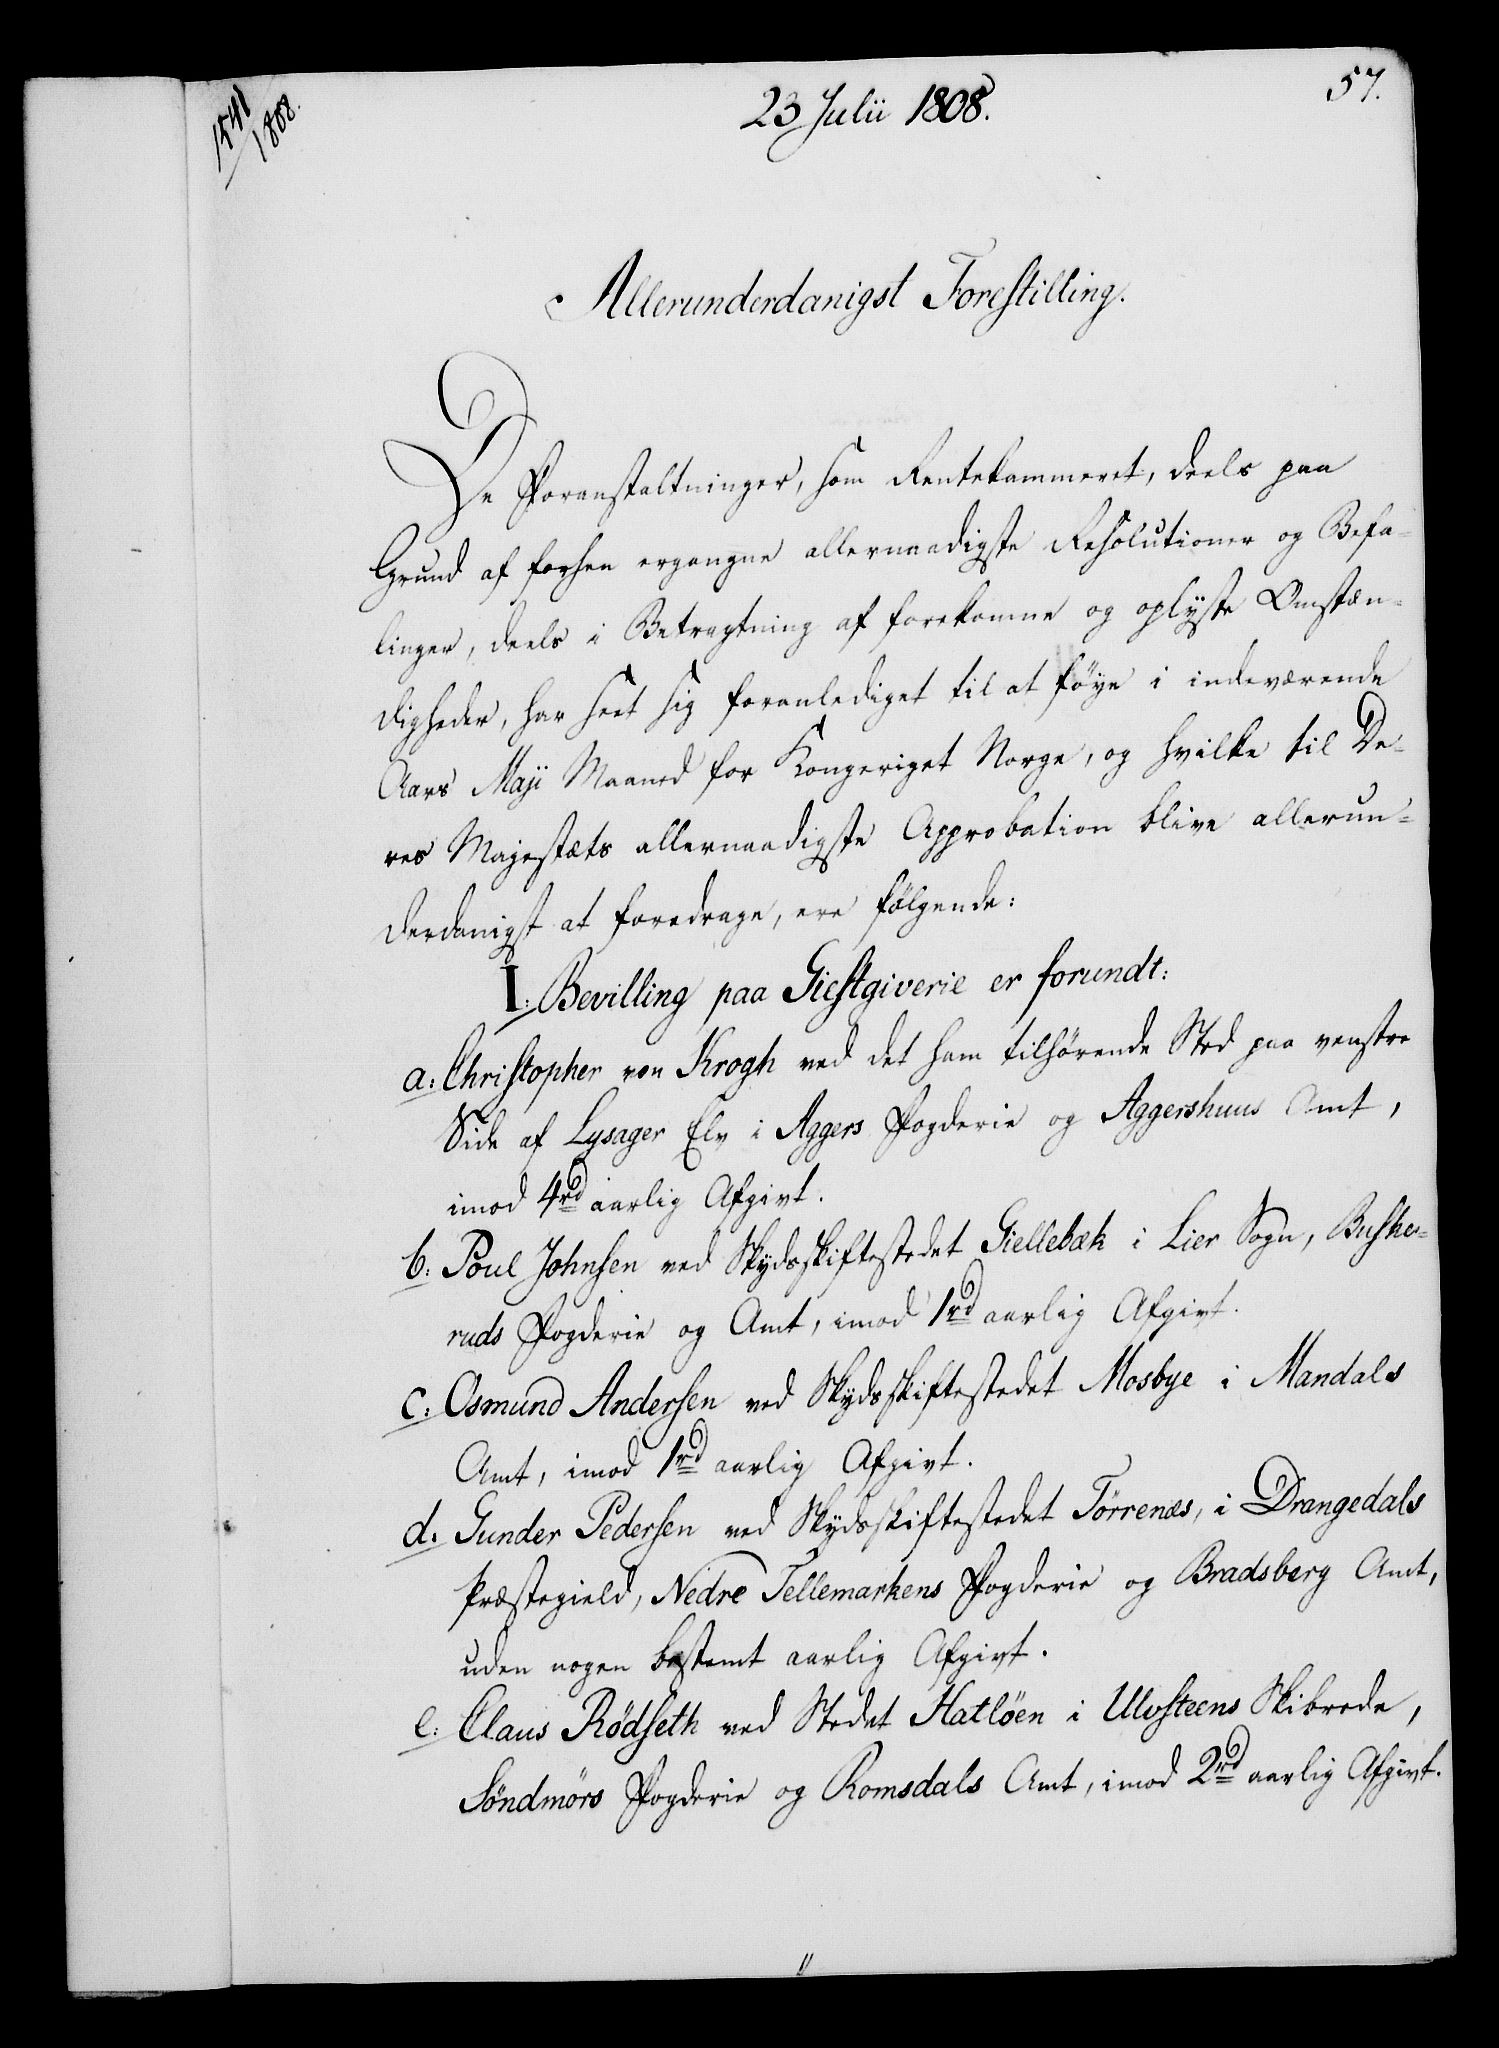 1541/1808.
23 Julii 1808.
57.
Allerunderdanigst Forestilling.
De Foranstaltninger, som Rentekammeret, deels paa
Grund af forhen ergangne allernaadigste Resolutioner og Befa-
linger, deels i Betragtning af forekomne og oplyste Omstæn-
digheder, har seet sig foranlediget til at føye i indeværende
Aars Maji Maaned for Kongeriget Norge, og hvilke til De-
res Majestæts allernaadigste Approbation blive allerun-
derdanigst at foredrage, ere følgende:
I: Bevilling paa Giestgiverie er forundt:
a: Christopher von Krogh ved det ham tilhørende Sted paa venstre
Side af Lysager Elv i Aggers Fogderie og Aggershuus Amt,
imod 4rd aarlig Afgivt.
b: Poul Johnsen ved Skydsskiftestedet Giellebæk i Lier Sogn, Buske-
ruds Fogderie og Amt, imod 1rd aarlig Afgivt.
c: Osmund Andersen ved Skydsskiftestedet Mosbye i Mandals
Amt, imod 1rd aarlig Afgivt.
d: Gunder Pedersen ved Skydsskiftestedet Tørrenæs, i Drangedals
Præstegield, Nedre Tellemarkens Fogderie og Bradsberg Amt,
uden nogen bestemt aarlig Afgivt.
e: Claus Rødseth ved Stedet Hatløen i Ulvsteens Skibrede,
Søndmørs Fogderie og Romsdals Amt, imod 2rd aarlig Afgivt.